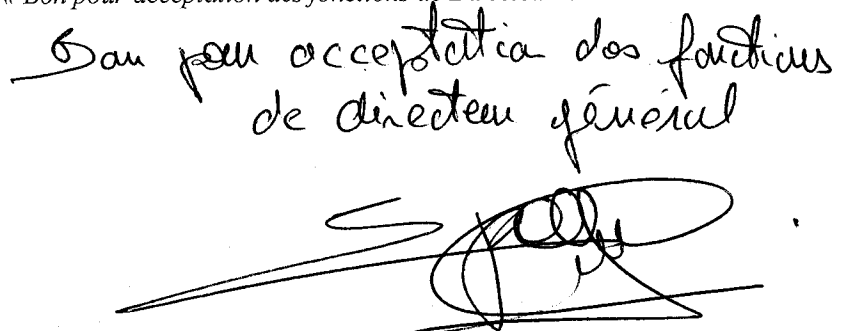 « Bon pour acceptation des fonctions de
Bon pour acceptation des fonctions
de directeur général